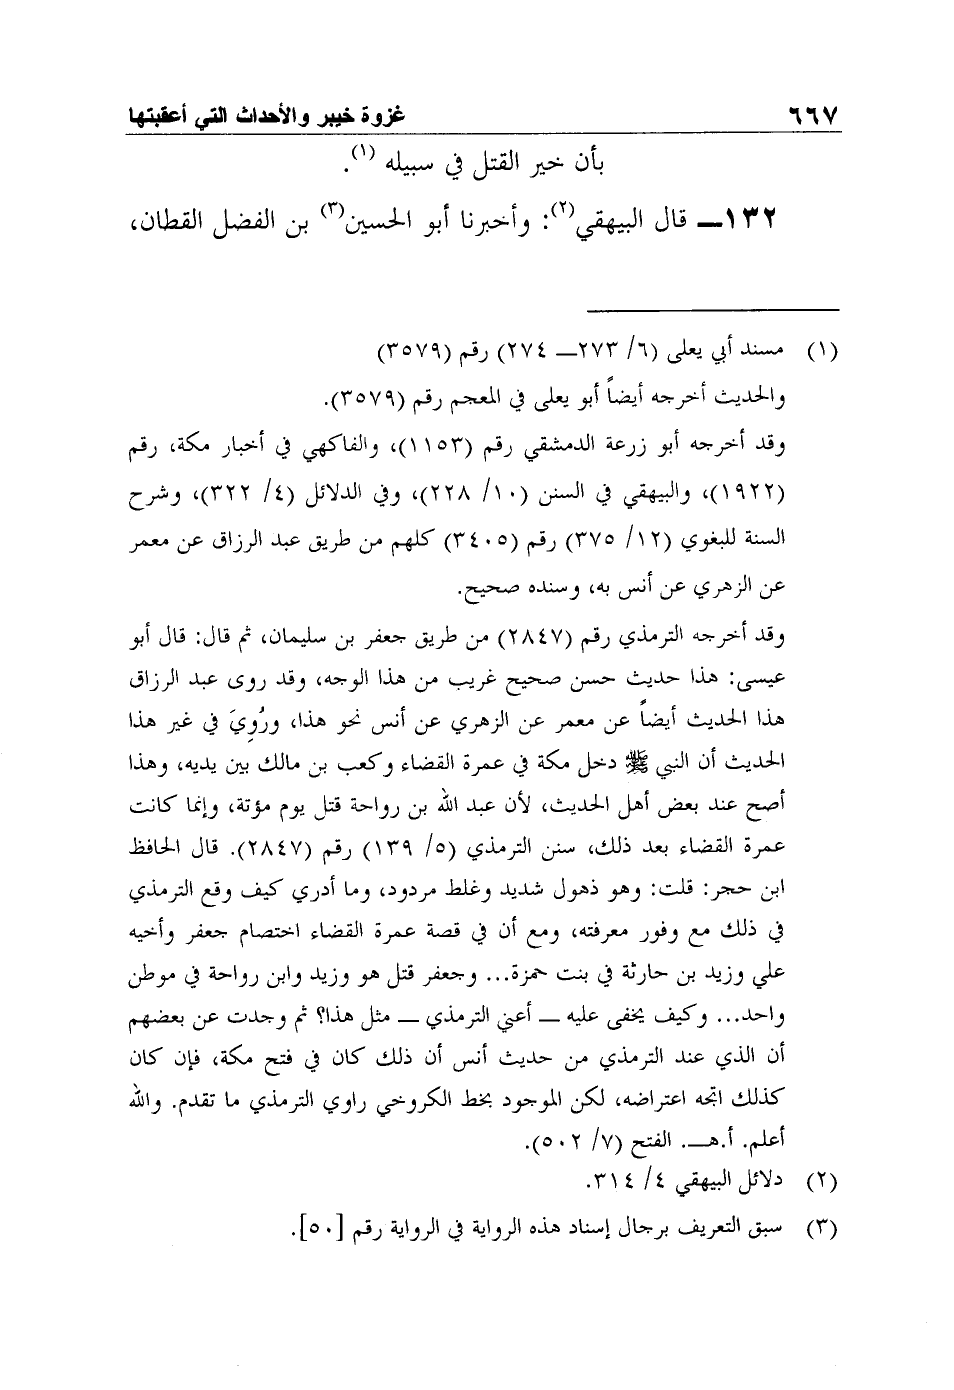 ٦٦٧ غزوة خيبر والأحداث التي أعقبتها
بأن خير القتل في سبيله (١).
١٣٢ــ قال البيهقي(٢): وأخبرنا أبو الحسين(٣) بن الفضل القطان،
(١) مسند أبي يعلى (٦/ ٢٧٣ــ ٢٧٤) رقم (٣٥٧٩)
والحديث أخرجه أيضاً أبو يعلى في المعجم رقم (٣٥٧٩).
وقد أخرجه أبو زرعة الدمشقي رقم (١١٥٣)، والفاكهي في أخبار مكة، رقم
(١٩٢٢)، والبيهقي في السنن (١٠/ ٢٢٨)، وفي الدلائل (٤/ ٣٢٢)، وشرح
السنة للبغوي (١٢/ ٣٧٥) رقم (٣٤٠٥) كلهم من طريق عبد الرزاق عن معمر
عن الزهري عن أنس به، وسنده صحيح.
وقد أخرجه الترمذي رقم (٢٨٤٧) من طريق جعفر بن سليمان، ثم قال: قال أبو
عيسى: هذا حديث حسن صحيح غريب من هذا الوجه، وقد روى عبد الرزاق
هذا الحديث أيضاً عن معمر عن الزهري عن أنس نحو هذا، ورُوِيَ في غير هذا
الحديث أن النبي ﷺ دخل مكة في عمرة القضاء وكعب بن مالك بين يديه، وهذا
أصح عند بعض أهل الحديث، لأن عبد الله بن رواحة قتل يوم مؤتة، وإنما كانت
عمرة القضاء بعد ذلك، سنن الترمذي (٥/ ١٣٩) رقم (٢٨٤٧). قال الحافظ
ابن حجر: قلت: وهو ذهول شديد وغلط مردود، وما أدري كيف وقع الترمذي
في ذلك مع وفور معرفته، ومع أن في قصة عمرة القضاء اختصام جعفر وأخيه
علي وزيد بن حارثة في بنت حمزة... وجعفر قتل هو وزيد وابن رواحة في موطن
واحد... وكيف يخفى عليه ــ أعني الترمذي ــ مثل هذا؟ ثم وجدت عن بعضهم
أن الذي عند الترمذي من حديث أنس أن ذلك كان في فتح مكة، فإن كان
كذلك اتجه اعتراضه، لكن الموجود بخط الكروخي راوي الترمذي ما تقدم. والله
أعلم. أ.هــ. الفتح (٧/ ٥٠٢).
(٢) دلائل البيهقي ٤/ ٣١٤.
(٣) سبق التعريف برجال إسناد هذه الرواية في الرواية رقم [٥٠].